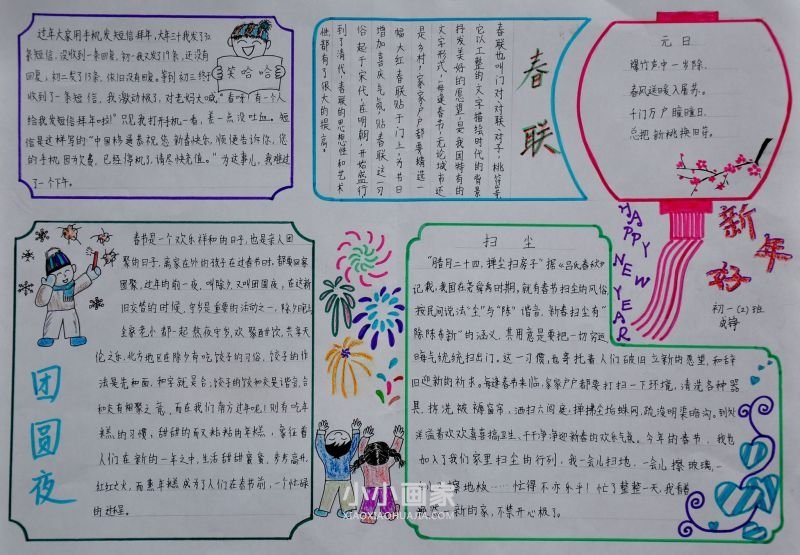 过年大家用手机发短信拜年,大年三十我发了32
条短信,没收到一条回复,初一我又发了19条,还没有
回复,初二发了13条,依旧没有回复。等到初三终于
收到了一条短信,我激动极了,对老妈大喊,"看呀!有一个人
给我发短信拜年啦!"只见我打开手机一看,差一点没吐血。短
信是这样写的"中国移通恭祝您新春快乐,顺便告诉你,您
的手机因为欠费,已经停机了,请尽快充值。"为这事儿,我难过
了一个下午。
笑哈哈
春联
春联也叫门对、对联、对子,桃符等,
它以工整的文字描绘时代的背景
抒发美好的愿望,是我国特有的
文字形式,每逢春节,无论城市还
是乡村,家家户户都要精选一
幅大红春联贴于门上,为节日
增加喜庆气氛,贴春联这一习
俗起于宋代,在明朝,开始盛行,
到了清代,春联的思想性和艺术
性都有了很大的提高。
元日
爆竹声中一岁除,
春风送暖入屠苏。
千门万户瞳瞳日,
总把新桃换旧符。
HAPPY NEW YEAR
新年好
初一(2)班
成铮
团圆夜
春节是一个欢乐祥和的日子,也是亲人团
聚的日子,离家在外的孩子在过春节时,都要回家
团聚,过年的前一夜,叫除夕,又叫团圆夜,在这新
旧交替的时候,守岁是重要的活动之一,除夕晚上
全家老小都一起熬夜守岁,欢聚酣饮,共享天
伦之乐,北方地区在除夕有吃饺子的习俗,饺子的作
法是先和面,和字就是合;饺子的饺和交是谐音,合
和交有相聚之意,而在我们南方过年呢!则有吃年
糕的习惯,甜甜的而又粘粘的年糕,象征着
人们在新的一年之中,生活甜甜蜜蜜,步步高升,
红红火火,而蒸年糕成为了人们在春节前,一个忙碌
的过程。
扫尘
"腊月二十四,掸尘扫房子"据《吕氏春秋》
记载,我国在尧舜禹时期,就有春节扫尘的风俗,
按民间说法"尘"与"陈"谐音,新春扫尘有"
除陈布新"的涵义,其用意是要把一切穷运
晦气统统扫出门。这一习惯,也寄托着人们破旧立新的愿望,和辞
旧迎新的祈求。每逢春节来临,家家户户都要打扫一下环境,清洗各种器
具,拆洗被褥窗帘,洒扫六闾庭,掸拂尘垢蛛网,疏浚明渠暗沟。到处
洋溢着欢欢喜喜搞卫生、干干净净迎新春的欢乐气氛。今年的春节,我也
加入了我们家里扫尘的行列,我一会儿扫地,一会儿擦玻璃,一
会儿擦地板……忙得不亦乐乎!忙了整整一天,我看着
新的家,不禁开心极了。
小小画家
GAOXIAOHUAJIA.COM